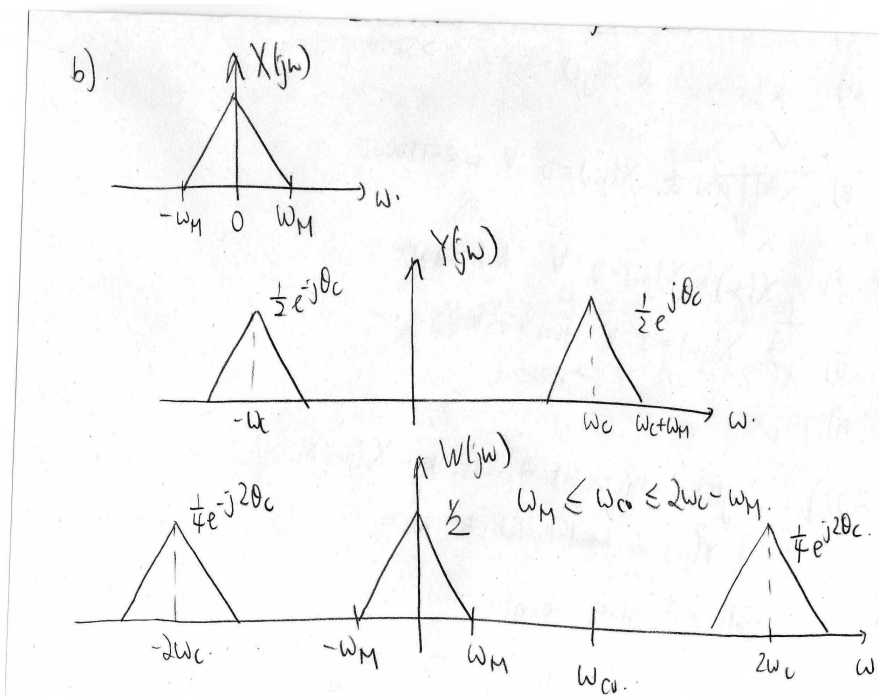 b) X(jω)
-ω_M 0 ω_M ω.
Y(jω)
½e^{-jθc} ½e^{jθc}
-ωc ωc ωc+ω_M ω.
W(jω)
¼e^{-j2θc} ½ ω_M ≤ ω_co ≤ 2ωc-ω_M. ¼e^{j2θc}.
-2ωc -ω_M ω_M ω_co. 2ωc ω